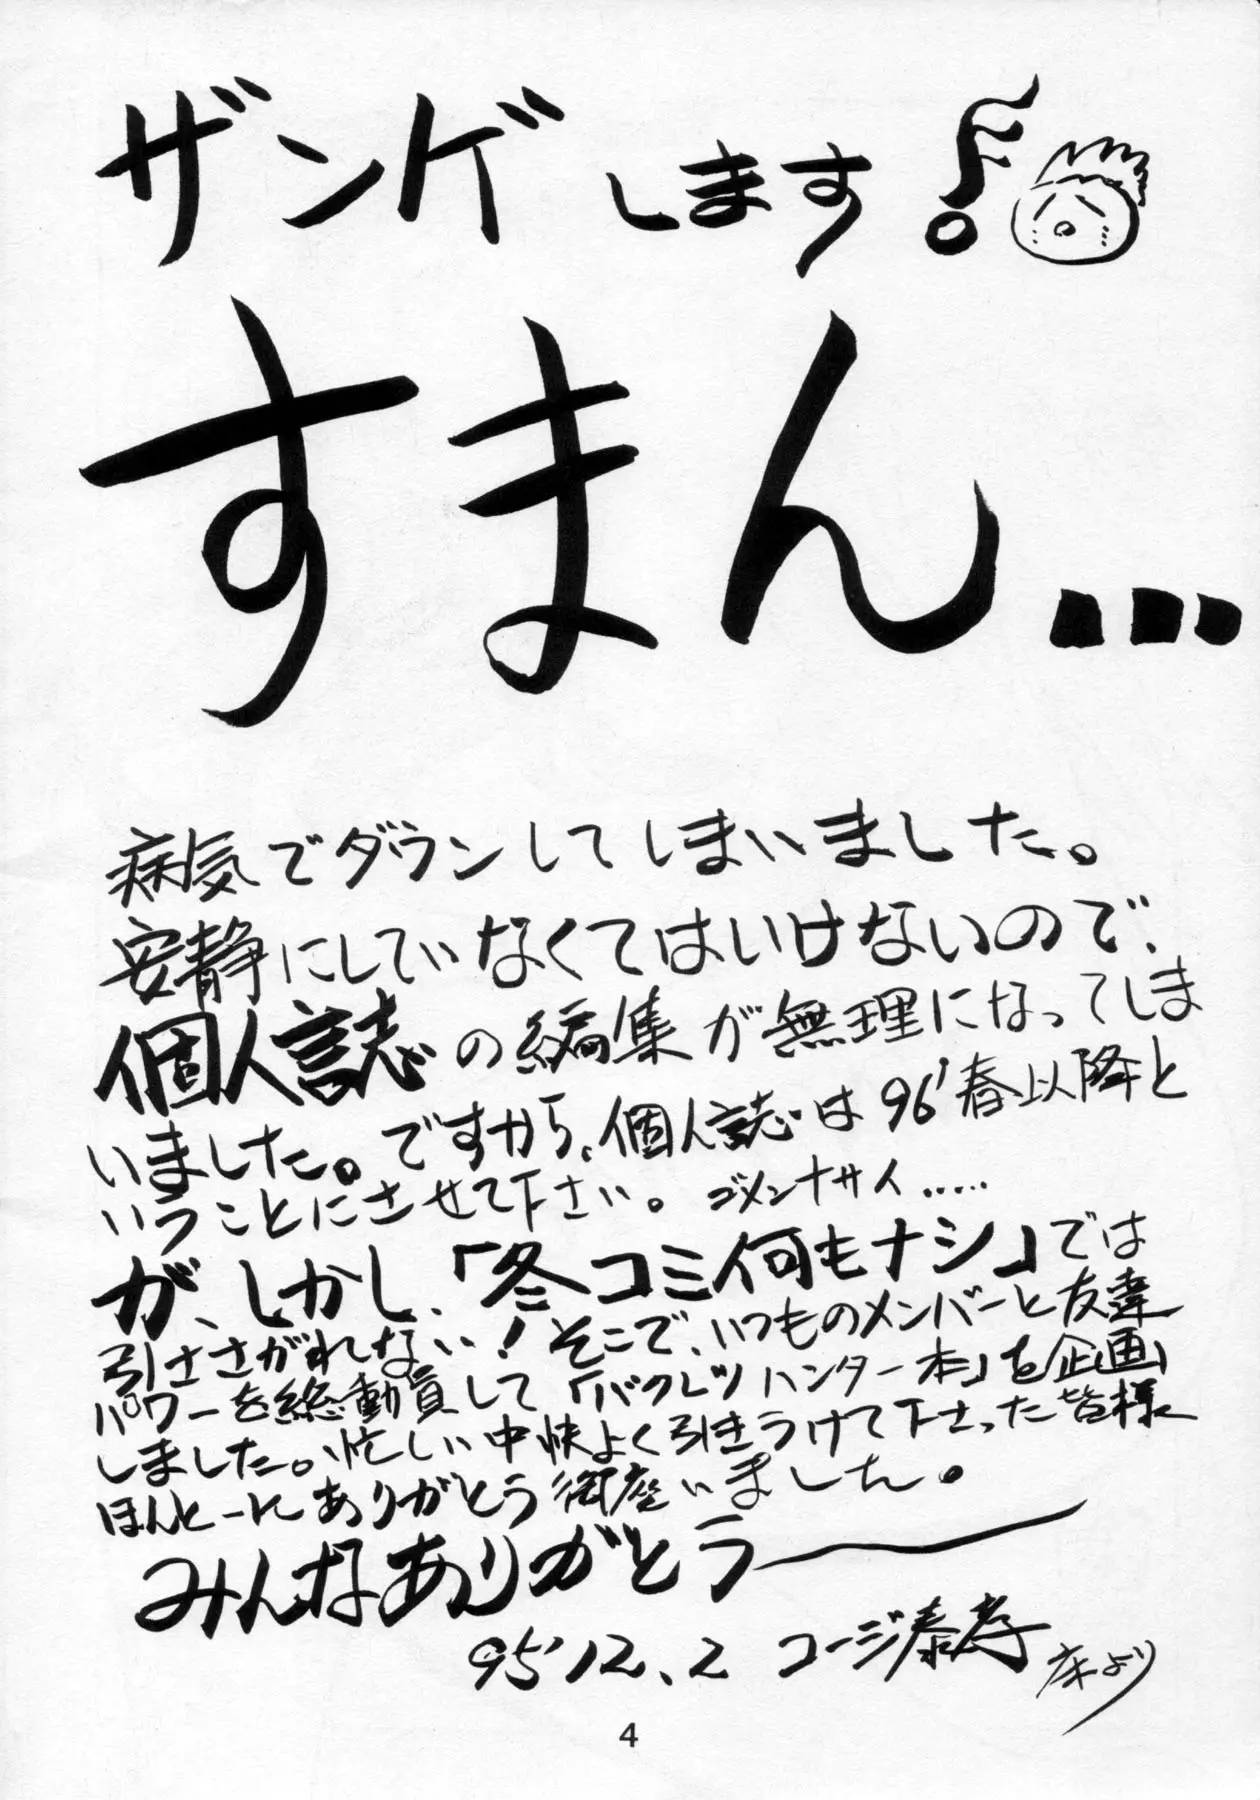 ザンゲします!
すまん...
病気でダウンしてしまいました。
安静にしていなくてはいけないので、
個人誌の編集が無理になってしま
いました。ですから、個人誌は96'春以降と
いうことにさせて下さい。ゴメンナサイ.....
が、しかし、「冬コミ何もナシ」では
引きさがれない!そこで、いつものメンバーと友達
パワーを総動員して「バクレツハンター本」を企画
しました。忙しい中快よく引きうけて下さった皆様
ほんとーにありがとう御座いました。
みんなありがとうー
95'12.2 コージ泰孝
床より
4